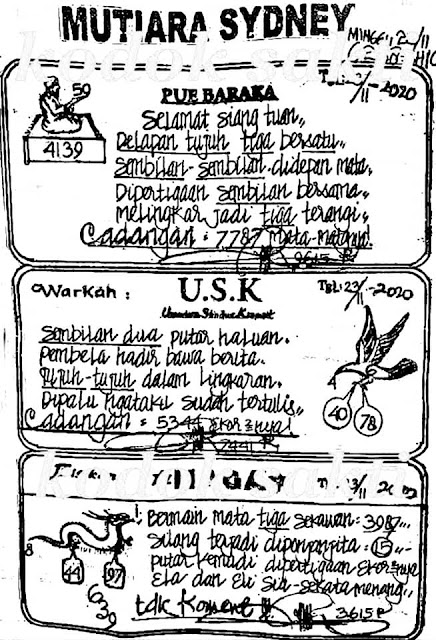 MUTIARA SYDNEY
kodok sakti
TGL: 23/11-2020
PUE BARAKA
59
4139
Selamat siang tuan,,
Delapan tujuh tiga bersatu,,
Sembilan-sembilan didepan mata,
Dipertigaan sembilan bersama,,
melingkar jadi tiga terangi,,
Cadangan: 7787 mata-matanya!
9615 P
Warkah:
U.S.K
TGL: 23/11-2020
Sembilan dua putar haluan.
Pembela hadir bawa berita.
Tujuh-tujuh dalam lingkaran.
Dipalu ngataku sudah tertulis,,
Cadangan: 5344 ekornya!
7441 P
4
40
78
kodok sakti
Bermain mata tiga sekawan: 3087,,
Silang terjadi diponponpita: 15,,
putar kemudi dipertigaan ekornya
Ela dan Eli sia-sekata menang,,
tdk Koment
3615 P
8
44
97
639